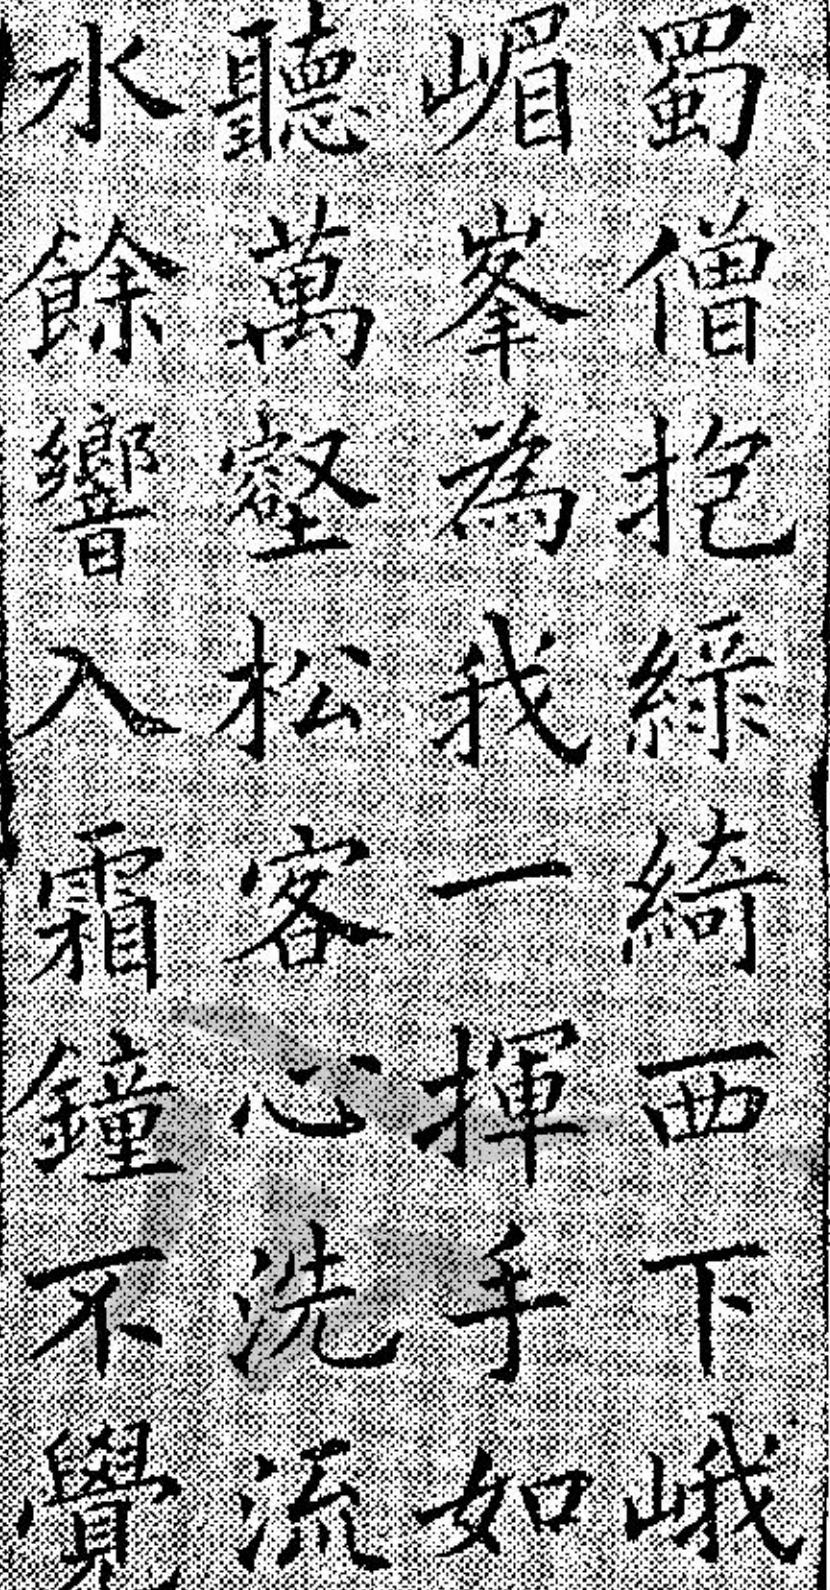 蜀僧抱綠綺西下峨
嵋峯為我一揮手如
聽萬壑松客心洗流
水餘響入霜鐘不覺